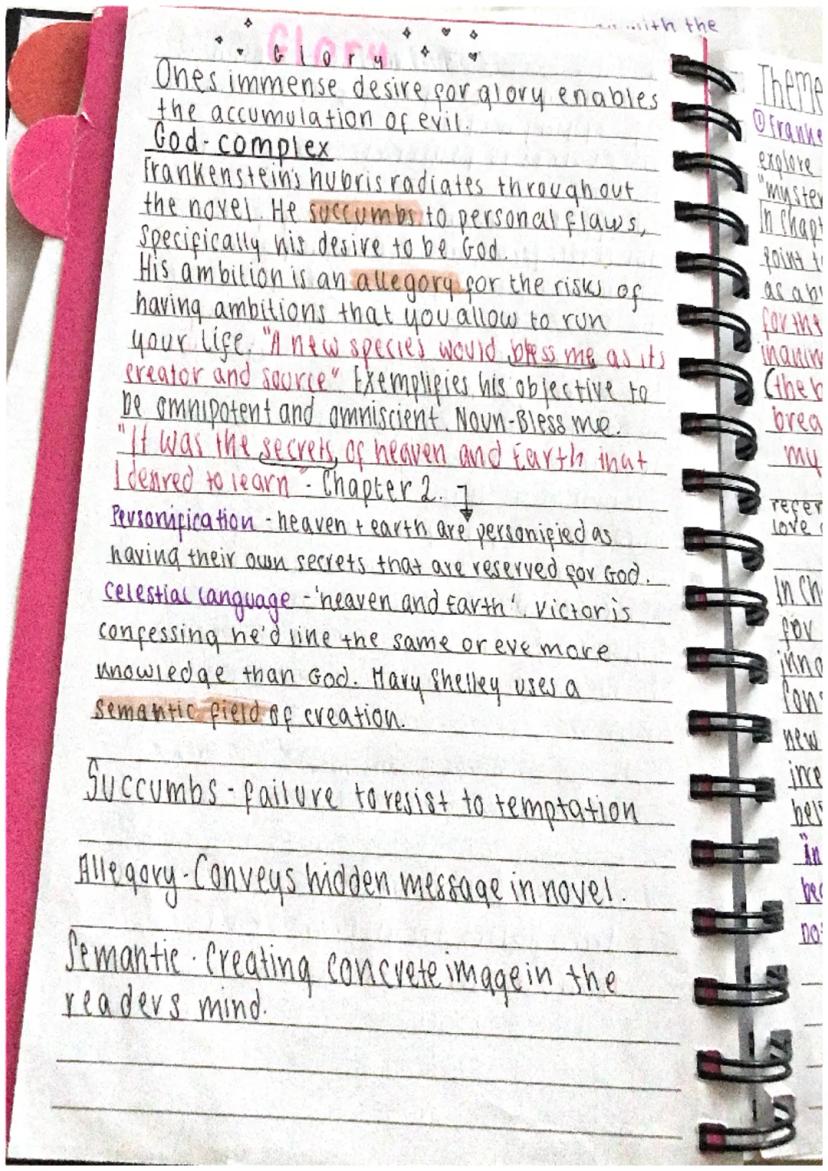 with the
Glory
Glory
Ones immense desire for glory enables
the accumulation of evil.
God-complex
Frankenstein's hubris radiates throughout
the novel. He succumbs to personal flaws,
specifically his desire to be God
His ambition is an allegory for the risks of
having ambitions that you allow to run
your life. "A new species would bless me as its
creator and source" Exemplifies his objective to
be omnipotent and omniscient. Noun-Bless me.
"It was the secrets of heaven and Earth that
I desired to learn" - Chapter 2.
Personification - heaven + earth are personified as
having their own secrets that are reserved for God.
Celestial language - 'heaven and Earth'. Victor is
confessing he'd like the same or eve more
knowledge than God. Mary Shelley uses a
semantic field of creation.
Succumbs - failure to resist to temptation
Allegory - Conveys hidden message in novel.
Semantic - Creating concrete image in the
readers mind.
Theme
① Franke
explore
"myster
In Chapt
point t
as a b
for the
inanim
(the b
brea
my
refer
love
In Ch
for
inno
Fons
new
irre
bel
"in
bec
no